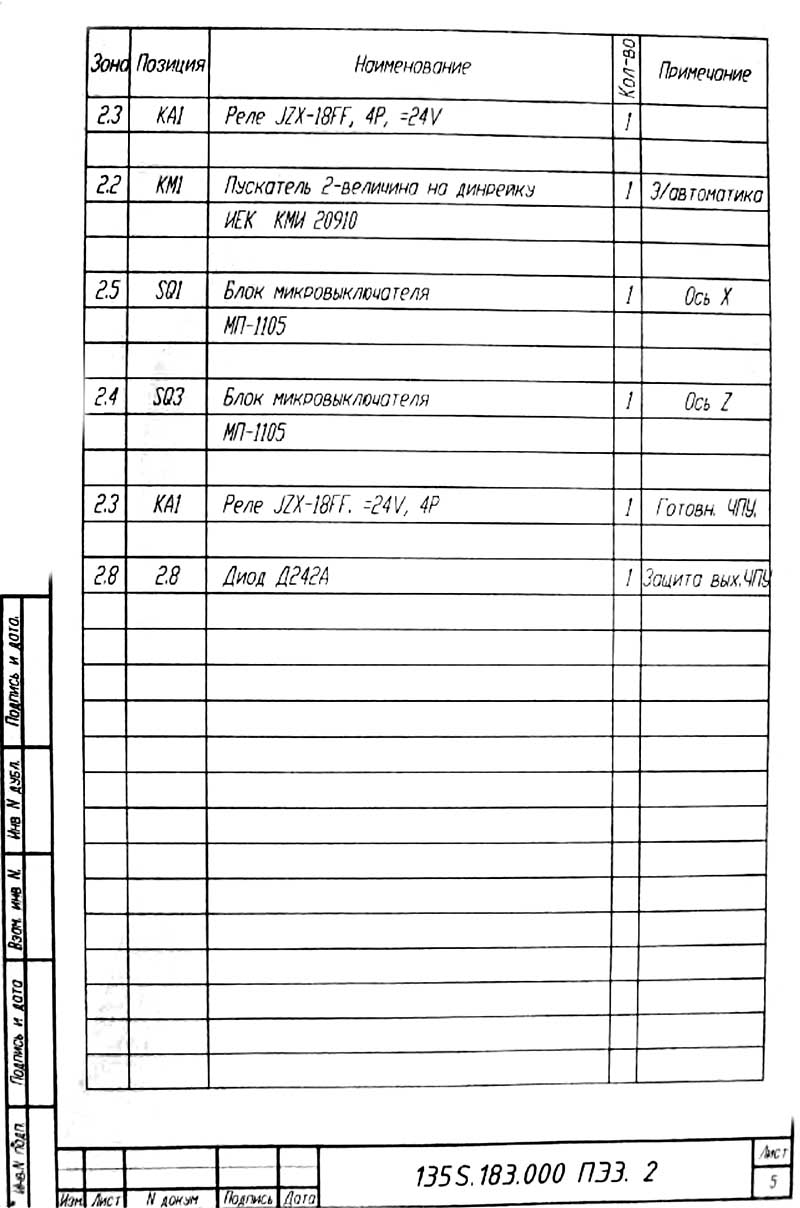 Зона Позиция Наименование Кол-во Примечание
2.3 КА1 Реле JZX-18FF, 4P, =24V 1
2.2 КМ1 Пускатель 2-величина на динрейку 1 Э/автоматика
ИЕК КМИ 20910
2.5 SQ1 Блок микровыключателя 1 Ось X
МП-1105
2.4 SQ3 Блок микровыключателя 1 Ось Z
МП-1105
2.3 КА1 Реле JZX-18FF. =24V, 4P 1 Готовн. ЧПУ.
2.8 2.8 Диод Д242А 1 Защита вых.ЧПУ
Подпись и дата.
Инв N дубл.
Взам. инв N.
Подпись и дата
Инв.N подл.
Изм Лист N докум Подпись Дата
135S.183.000 ПЭЗ. 2
Лист
5